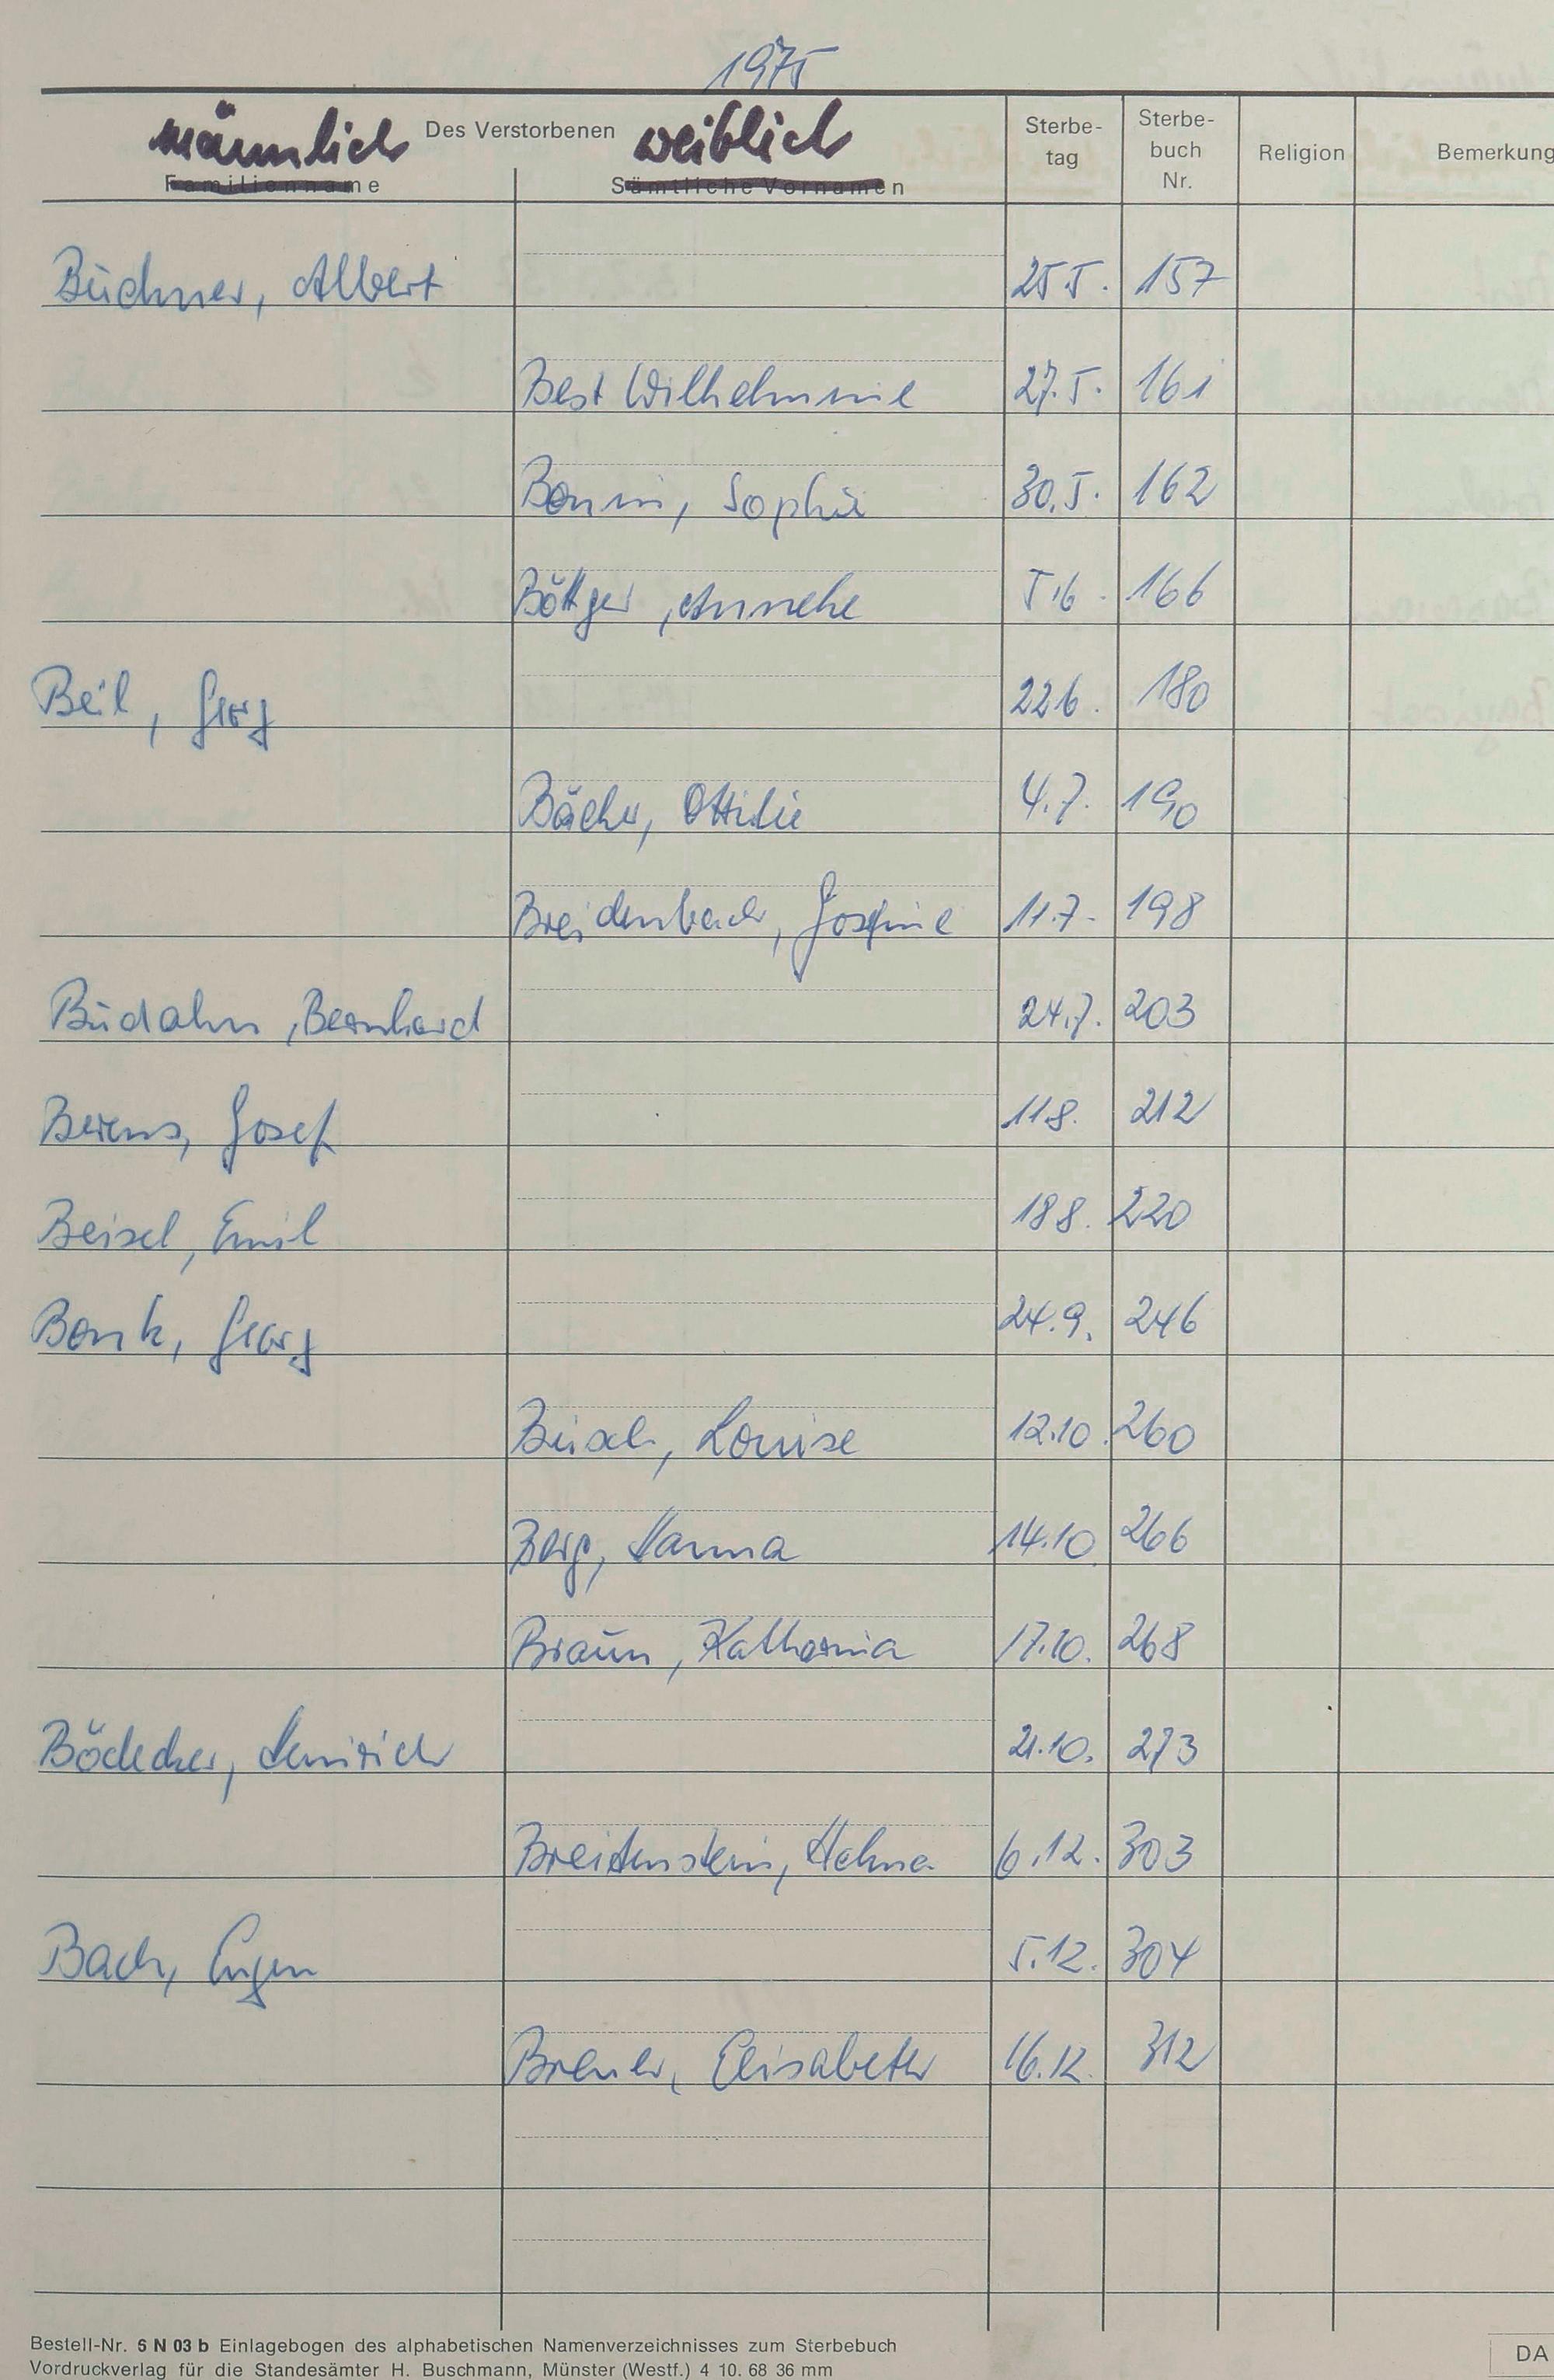 1975
männlich Des Verstorbenen weiblich
Familienname Sämtliche Vornamen Sterbe-tag Sterbe-buch Nr. Religion Bemerkung
Büchner, Albert 25 5. 157
Best Wilhelmine 27.5. 161
Bonin, Sophie 30.5. 162
Böttger, Annelie 5.6. 166
Beil, Georg 22 6. 180
Bächer, Ottilie 4.7. 190
Breidenbach, Josefine 11.7. 198
Budahn, Bernhard 24.7. 203
Josef 11 8. 212
Beisel, Emil 18 8. 220
Bonk, Georg 24.9. 246
Busch, Louise 12.10. 260
Berg, Hanna 14.10. 266
Braun, Katharina 17.10. 268
Bödecker, Heinrich 21.10. 273
Breitenstein, Helene 6.12. 303
Bach, Eugen 5.12. 304
Elisabeth 16.12. 312
Bestell-Nr. 6 N 03 b Einlagebogen des alphabetischen Namenverzeichnisses zum Sterbebuch
Vordruckverlag für die Standesämter H. Buschmann, Münster (Westf.) 4 10. 68 36 mm
DA